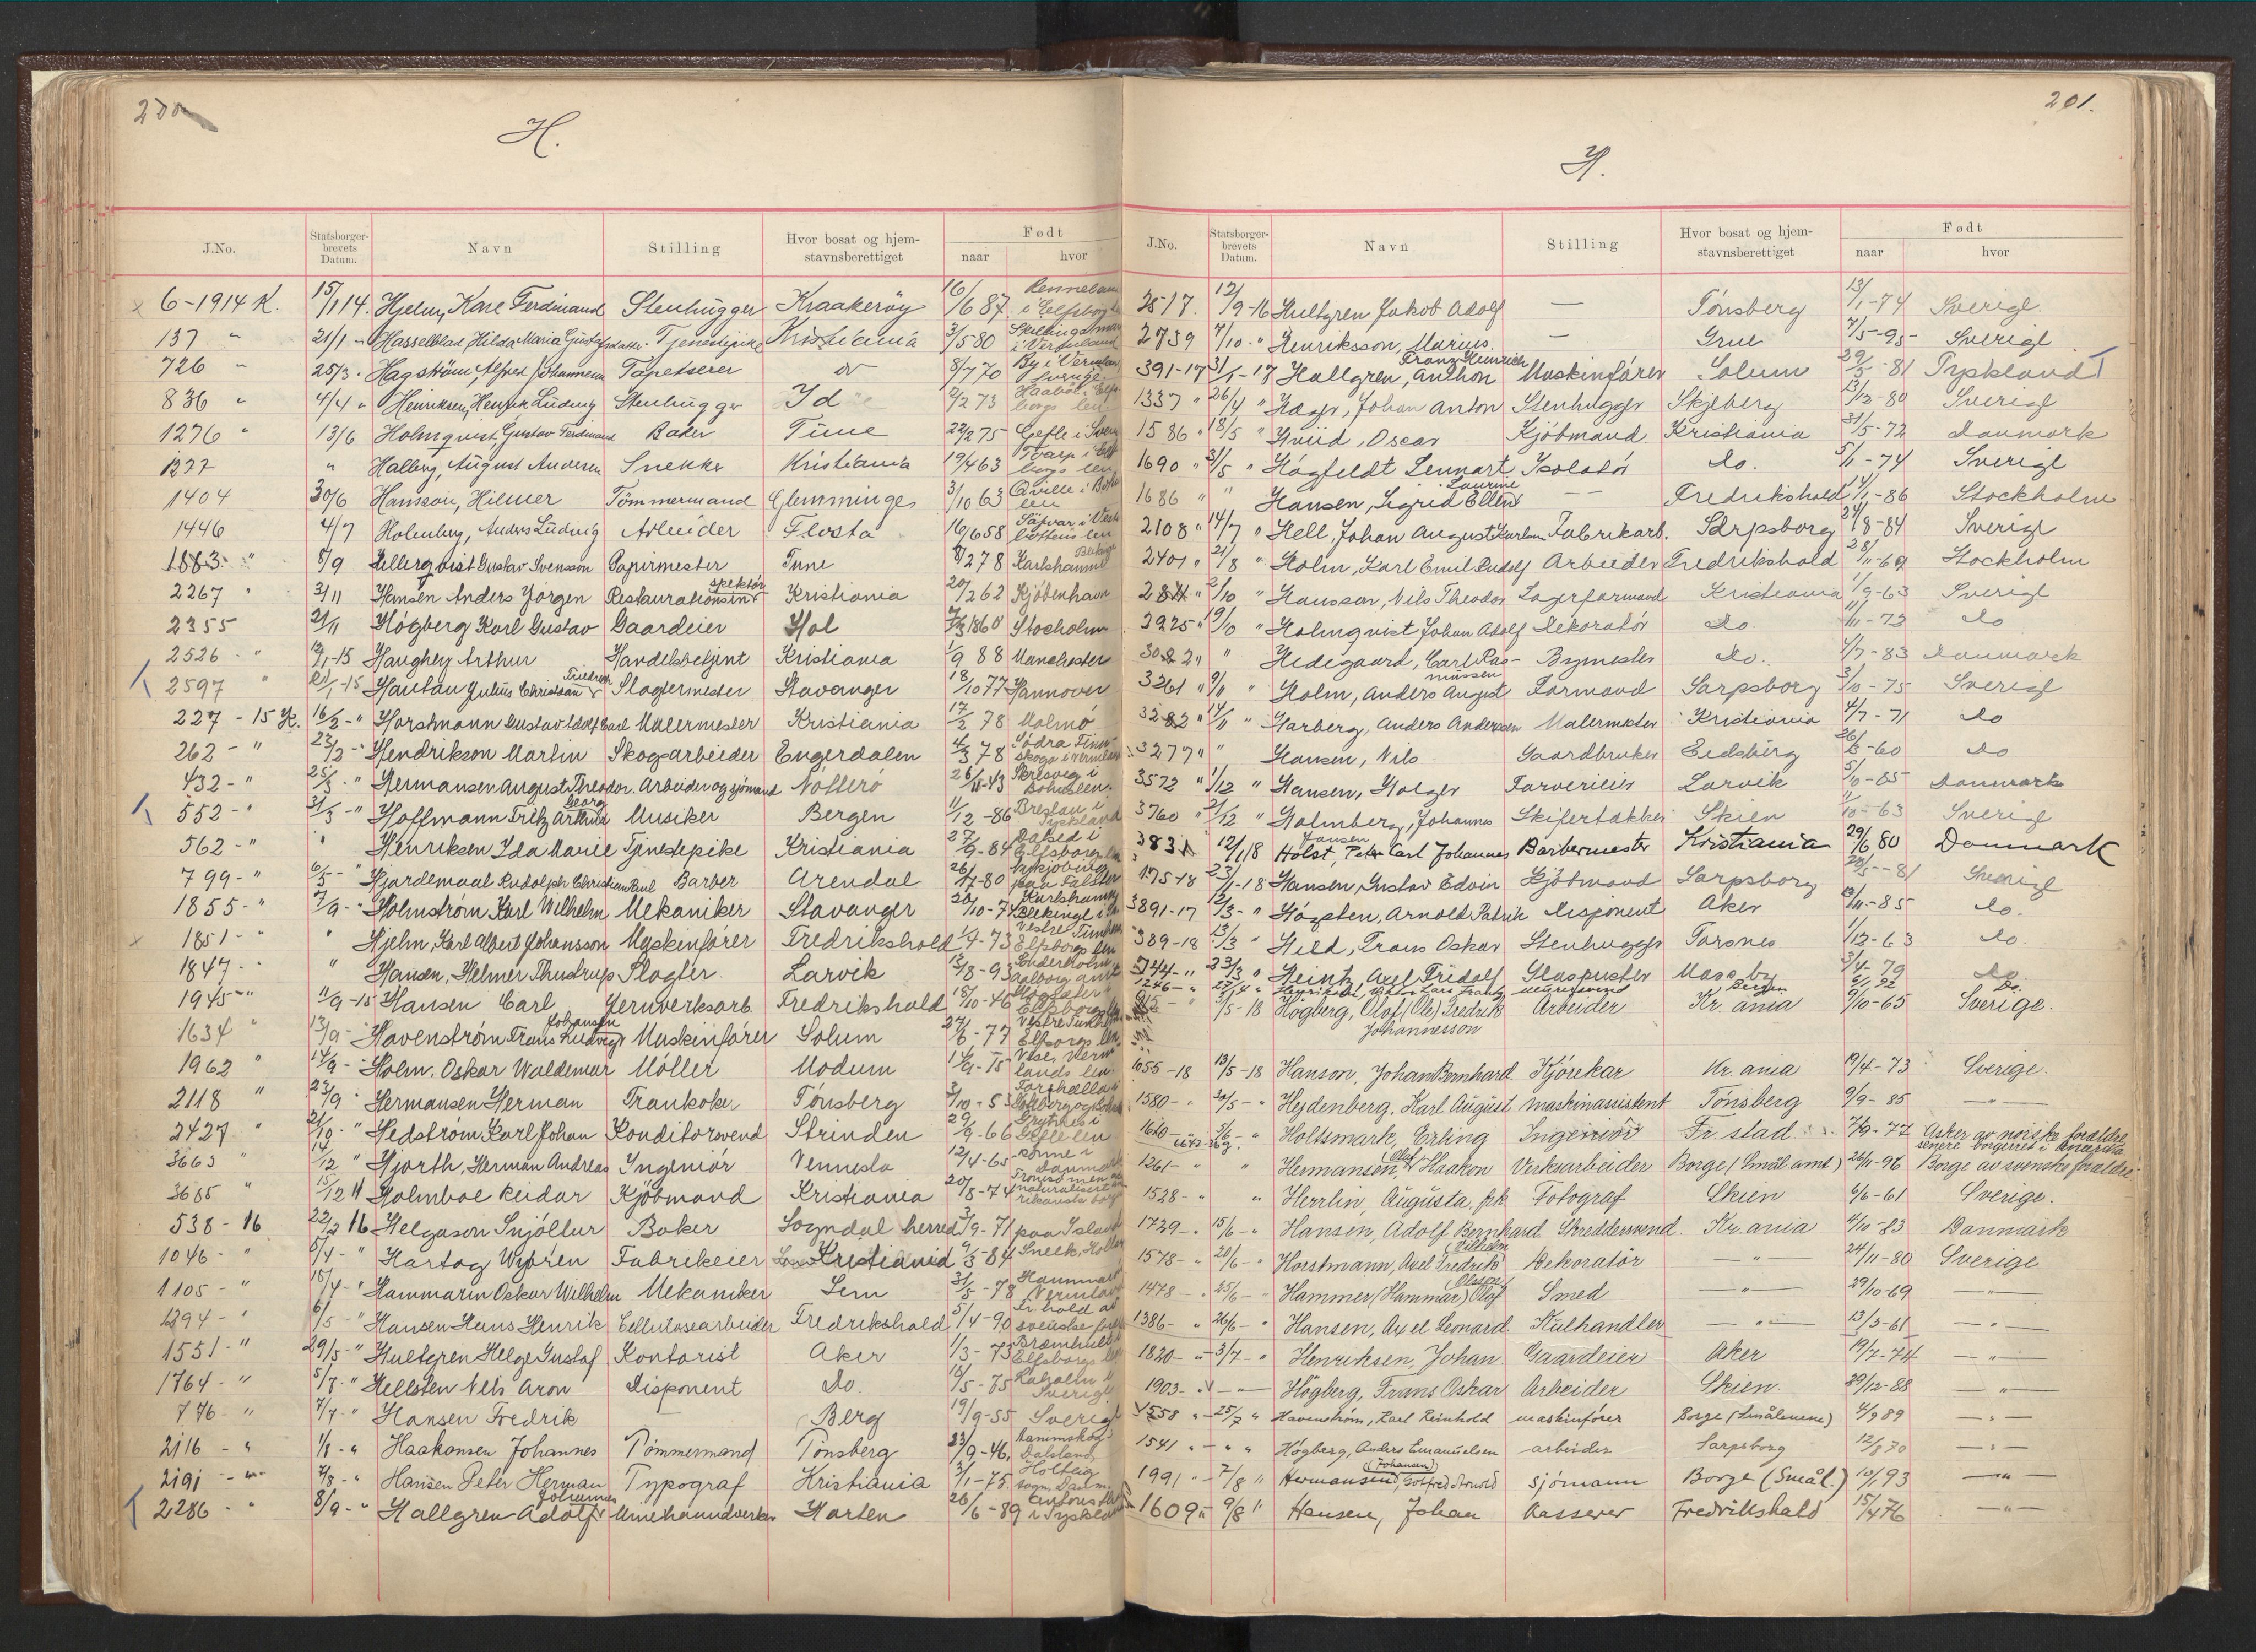 200
H.
J.No. Statsborger-brevets Datum. Navn Stilling Hvor bosat og hjem-stavnsberettiget Født naar hvor
6-1914 K. 15/1 14. Hjelm, Karl Ferdinand Stenhugger Kraakerøy 16/6 87 Rennelanda i Elfsborgs
137 " 21/1 " Hasselblad, Hilda Maria Gustafsdatter Tjenestepike Kristiania 3/5 80 Skillingsmark i Vermland
726 " 25/3 " Hagström, Alfred Johannesen Tapetserer do 8/7 70 By i Vermland Sverige
836 " 4/4 " Henriksen, Henrik Ludvig Stenhugger Id 2/2 73 Haabol Elfsborgs len
1276 " 13/6 Holmqvist, Gustav Ferdinand Baker Tune 22/2 75 Gefle i Sverige
1327 " Halberg, August Andersen Snekker Kristiania 19/4 63
1404 30/6 Hansson, Hilmer Tömmermand Glemminge 3/10 63
1446 4/7 Holmberg, Anders Ludvig Arbeider Flosta 16/6 58 Säfvar i Vesterbottens len
1883 " 8/9 Hellerqvist Gustav Svensson Papirmester Tune 8/2 78 Karlshamn Blekinge
2267 " 3/11 Hansen Anders Jörgen Restaurationsinspektör Kristiania 20/2 62 Kjöbenhavn
2355 21/11 Högberg Karl Gustav Gaardeier Hol 7/3 1860 Stocholm
2526 - " 12/1-15 Haughey Arthur Handelsbetjent Kristiania 1/9 88 Manchester
2597 " 21/1-15 Hantau Julius Christian Friedrich Slagtermester Stavanger 18/10 77 Hannover
227 - 15 K. 16/2 - " Horstmann Gustav Adolf Carl Malermester Kristiania 17/2 78 Malmö
262 - " 22/2 - " Hendrikson Martin Skogsarbeider Engerdalen 4/3 78 Södra Finnskoga i Vermland
432 - " 25/3 - " Hermansen August Theodor. Arbeider og sjömand Nötterö 26/11-43 Bohuslen.
552 - " 31/3 - " Hoffmann Fritz Arthur Georg Musiker Bergen 11/12 -86 Breslau i Tyskland
562 - " " Henriksen Ida Marie Tjenestepike Kristiania 27/9-84 Elfsborgs len
799 - " 6/5 - " Hjardemaal Rudolph Christian Paul Barber Arendal 26/7-80 Nykjöbing paa Falster
1855 - " 7/9 - " Holmström Karl Wilhelm Mekaniker Stavanger 20/10-74 Karlshamn Blekinge len
1851 - " " Hjelm, Karl Albert Johansson Maskinförer Fredrikshald 1/4-73 Elfsborgs len
1847 - " " Hansen, Helmer Thustrup Slagter. Larvik 13/8-93 Sönderholm Aalborg amt
1945 - " 11/9-15 Hansen Carl Jernverksarb. Fredrikshald 18/10-46 Elfsborgs
1634 " 13/9 - " Havenström Frans Ludvig Johansen Maskinförer Solum 27/6-77 Elfsborgs len
1962 " 14/9 - " Holm. Oskar Waldemar Möller Modum 14/9-75 Vase, Vermlands len
2118 " 22/9 " Hermansen Herman Trankoker Tönsberg 3/10-53
2427 " 21/10 - " Hedström Karl Johan Konditorsvend Strinden 29/9-66 Gefle len
3663 " 14/12 " Hjorth, Herman Andreas Ingeniör Vennesla 12/4-65 Rönne i Danmark
3685 " 15/12 " Holmboe Reidar Kjöbmand Kristiania 20/8-74 Tromsö men naturalisert amerikansk borger
538 - 16 22/2 16 Helgason Snjólfur Baker Sogndal herred 3/9-71 paa Island
1046 - " 5/4 - " Hartog Wybren Fabrikeier Kristiania 9/3-84 Sneek, Holland
1105 - " 15/4 - " Hammarin Oskar Wilhelm Mekaniker Sem 31/5-78 Hammarö Vermland
1294 - " 6/5 - " Hansen Hans Henrik Cellulosearbeider Fredrikshald 5/4-90 Fr.hald av svenske foreldre
1551 - " 29/5 - " Hultgren Helge Gustaf Kontorist Aker 1/3-73 Bræmhult Elfsborgs len
1764 - " 5/7 - " Hellsten Nels Aron Disponent Do. 19/5-75 Laholm i Sverige
776 - " 7/7 - " Hansen Fredrik — Berg 19/9-55 Sverige
2116 - " 1/8 - " Haakonsen Johannes Tömmermand Tönsberg 23/9-46, Dalsland
2191 - " 7/8 - " Hansen Peter Herman Typograf Kristiania 3/1-75 Holteig sogn, Danm.
2286 - " 8/9 - " Hallgren Adolf Johannes Minehaandverker Horten 26/6-89 i Tyskland
201.
H.
J.No. Statsborger-brevets Datum. Navn Stilling Hvor bosat og hjem-stavnsberettiget Født naar hvor
2517. 12/9-16 Hultgren Jakob Adolf — Tönsberg 13/1-74 Sverige.
2739 7/10 - " Henriksson, Marius. — Grue 7/5-95 Sverige
391-17 31/1-17 Hallgren, Anthon Franz Heinrich Maskinförer Solum 29/5-81 Tyskland
1337 " 26/4 " Hæger, Johan Anton Stenhugger Skjeberg 13/12-80 Sverige
1586 " 18/5 " Hviid, Oscar Kjöbmand Kristiania 31/5-72 Danmark
1690 " 31/5 " Högfeldt Lennart Isolatör do. 5/1-74 Sverige
1686 " " Hansen, Sigrid Ellen Laurine — Fredrikshald 14/1-86 Stockholm
2108 " 14/7 " Hell, Johan August Karlson Fabrikarb. Sarpsborg 24/8-84 Sverige
2401 " 21/8 " Holm, Karl Emil Rudolf Arbeider Fredrikshald 28/11-69 Stockholm
2811 " 2/10 " Hansson, Nils Theodor Lagerformand Kristiania 1/9-63 Sverige
2925 " 19/10 " Holmqvist Johan Adolf Dekoratör do. 11/11-73 do
3022 " " Hedegaard, Carl Rasmussen Bymester do. 4/7-83 Danmark
3261 " 9/11 " Holm, Anders August Formand Sarpsborg 3/10-75 Sverige
3282 " 14/11 " Harberg, Anders Andersen Malermester Kristiania 4/7-71 do
3277 " " Hansen, Nils Gaardbruker Eidsberg 26/8-60 do
3572 " 1/12 " Hansen, Holger Farverieier Larvik 5/10-85 Danmark
3760 " 21/12 " Halmberg, Johannes Skifertækker Skien 11/10-63 Sverige
3831 12/1 18 Holst, Peter Carl Johannes Jansen Barbermester Kristiania 29/6 80 Danmark
175-18 23/1-18 Hansen, Gustav Edvin Kjöbmand Sarpsborg 28/5-81 Sverige
3891-17 12/3 - " Högsten, Arnold Patrik Disponent Aker 19/11-85 do.
389-18 13/3 " Hild, Frans Oskar Stenhugger Torsnes 1/12-63 do.
744 - " 23/3 " Heintz, Axel Fridolf Glaspuster Moss by 3/4-79 do.
1246 - " 27/4 " Bergen 6/1 92 Do.
3/5-18 Högberg, Olof (Ole) Fredrik Johannesson Arbeider Kr.ania 9/10-65 Sverige.
1055-18 13/5-18 Hanson, Johan Bernhard. Kjörekar Kr.ania 19/4-73 Sverige.
1580 - " 30/5 - " Hejdenberg. Karl August maskinassistent Tönsberg 9/9-85 — " —
1610 - " 5/6 - " Holtsmark, Erling Ingeniör Fr.stad 7/9-77 Asker av norske forældre senere borgerret i Amerika
1261 - " " Hermansen, Olof Haakon Verksarbeider Borge (Smål amt) 26/11-96 Borge av svenske forældre
1528 - " " Herrlin, Augusta, frk Fotograf Skien 6/6-61 Sverige.
1729 - " 15/6 - " Hansen, Adolf Bernhard Skreddersvend. Kr.ania 4/10-83 Danmark
1578 - " 20/6 - " Horstmann, Axel Fredrik Vilhelm Dekoratör — " — 24/11-80 Sverige
1478 - " 25/6 - " Hammer (Hammar) Olof Olsson Smed — " — 29/10-69 — " —
1386 - " 26/6 - " Hansen, Axel Leonard Kulhandler — " — 13/3-61 — " —
1820 - " 3/7 - " Henriksen, Johan. Gaardeier Aker 19/7-74 — " —
1903 - " — " — Högberg, Frans Oskar Arbeider Skien. 29/12-88 — " —
1558 " - 25/7 " Havenström, Karl Reinhold maskinförer Borge (Smålenene) 4/9 89 — " —
1541 " - " " Högberg, Anders Emanuelsen arbeider Sarpsborg 12/8 70 — " —
1991 " - 7/8 " Hermansen (Johansen), Gotfred Arnold sjömann Borge (Smål.) 10/1 93 — " —
1609 " 9/8 " Hansen, Johan Kasserer Fredrikshald 15/4 76 — " —